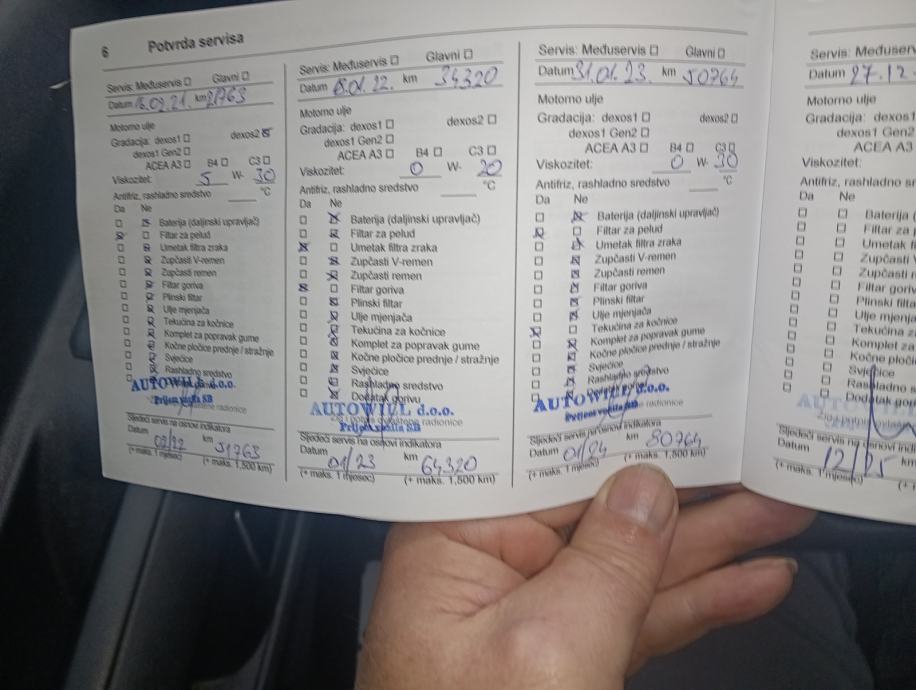 6 Potvrda servisa
Servis: Međuservis Glavni
Datum 16.02.21. km 21763
Motorno ulje
Gradacija: dexos1 dexos2
dexos1 Gen2
ACEA A3 B4 C3
Viskozitet: 5 W- 30
Antifriz, rashladno sredstvo °C
Da Ne
Baterija (daljinski upravljač)
Filtar za pelud
Umetak filtra zraka
Zupčasti V-remen
Zupčasti remen
Filtar goriva
Plinski filtar
Ulje mjenjača
Tekućina za kočnice
Komplet za popravak gume
Kočne pločice prednje / stražnje
Svjećice
Rashladno sredstvo
AUTOWILL d.o.o.
Prijem vozila SB
Sljedeći servis na osnovi indikatora
Datum 02/22 km 51763
(+ maks. 1 mjesec) (+ maks. 1,500 km)
Servis: Međuservis Glavni
Datum 18.01.22. km 34320
Motorno ulje
Gradacija: dexos1 dexos2
dexos1 Gen2
ACEA A3 B4 C3
Viskozitet: 0 W- 20
Antifriz, rashladno sredstvo °C
Da Ne
Baterija (daljinski upravljač)
Filtar za pelud
Umetak filtra zraka
Zupčasti V-remen
Zupčasti remen
Filtar goriva
Plinski filtar
Ulje mjenjača
Tekućina za kočnice
Komplet za popravak gume
Kočne pločice prednje / stražnje
Svjećice
Rashladno sredstvo
Dodatak gorivu
AUTOWILL d.o.o.
Prijem vozila SB
Sljedeći servis na osnovi indikatora
Datum 01/23 km 64320
(+ maks. 1 mjesec) (+ maks. 1,500 km)
Servis: Međuservis Glavni
Datum 31.01.23. km 50764
Motorno ulje
Gradacija: dexos1 dexos2
dexos1 Gen2
ACEA A3 B4 C3
Viskozitet: 0 W- 30
Antifriz, rashladno sredstvo °C
Da Ne
Baterija (daljinski upravljač)
Filtar za pelud
Umetak filtra zraka
Zupčasti V-remen
Zupčasti remen
Filtar goriva
Plinski filtar
Ulje mjenjača
Tekućina za kočnice
Komplet za popravak gume
Kočne pločice prednje / stražnje
Svjećice
Rashladno sredstvo
AUTOWILL d.o.o.
radionice
Sljedeći servis na osnovi indikatora
Datum 01/24 km 80764
(+ maks. 1 mjesec) (+ maks. 1,500 km)
Servis: Međuserv
Datum 27.12.
Motorno ulje
Gradacija: dexos1
dexos1 Gen
ACEA A3
Viskozitet:
Antifriz, rashladno sr
Da Ne
Baterija
Filtar za p
Umetak f
Zupčasti
Zupčasti
Filtar goriv
Plinski filta
Ulje mjenja
Tekućina z
Komplet za
Kočne ploči
Dodatak gor
Sljedeći servis na osnovi indi
Datum
(+ maks. 1 mjesec) (+